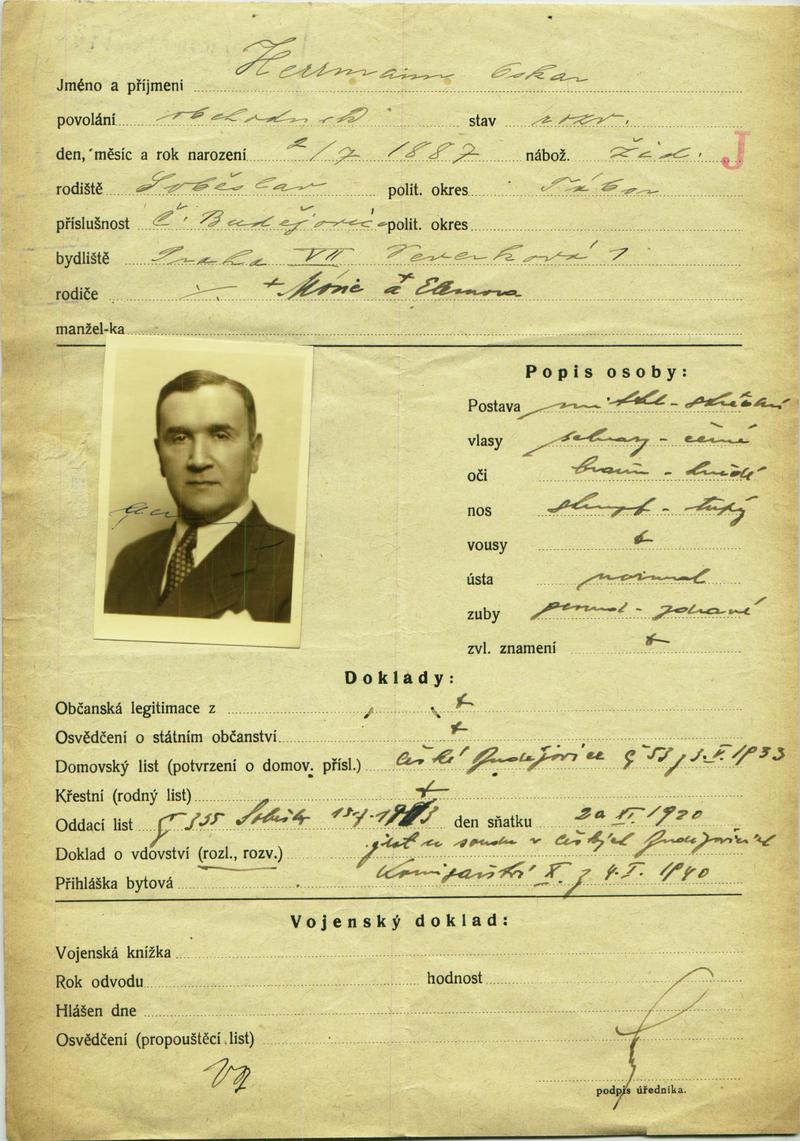 Jméno a příjmení Herrmann Oskar
povolání obchodník stav rozv.
den, měsíc a rok narození 2/7 1887 nábož. žid. J
rodiště Soběslav polit. okres Tábor
příslušnost Č. Budějovice polit. okres
bydliště Praha VII 1
rodiče + Móric a +
manžel-ka
Popis osoby:
Postava mittel - střední
vlasy schwarz - černé
oči braun - hnědé
nos stumpf - tupý
vousy +
ústa normal
zuby gesund - zdravé
zvl. znamení +
Doklady:
Občanská legitimace z +
Osvědčení o státním občanství +
Domovský list (potvrzení o domov. přísl.) České Budějovice č 53 z 3.V.1933
Křestní (rodný list) +
Oddací list č 335 den sňatku 20 1920
Doklad o vdovství (rozl., rozv.) u soudu v Českých Budějovicích
Přihláška bytová Komisařství X. z 4.I.1940
Vojenský doklad:
Vojenská knížka
Rok odvodu hodnost
Hlášen dne
Osvědčení (propouštěcí list)
podpis úředníka.